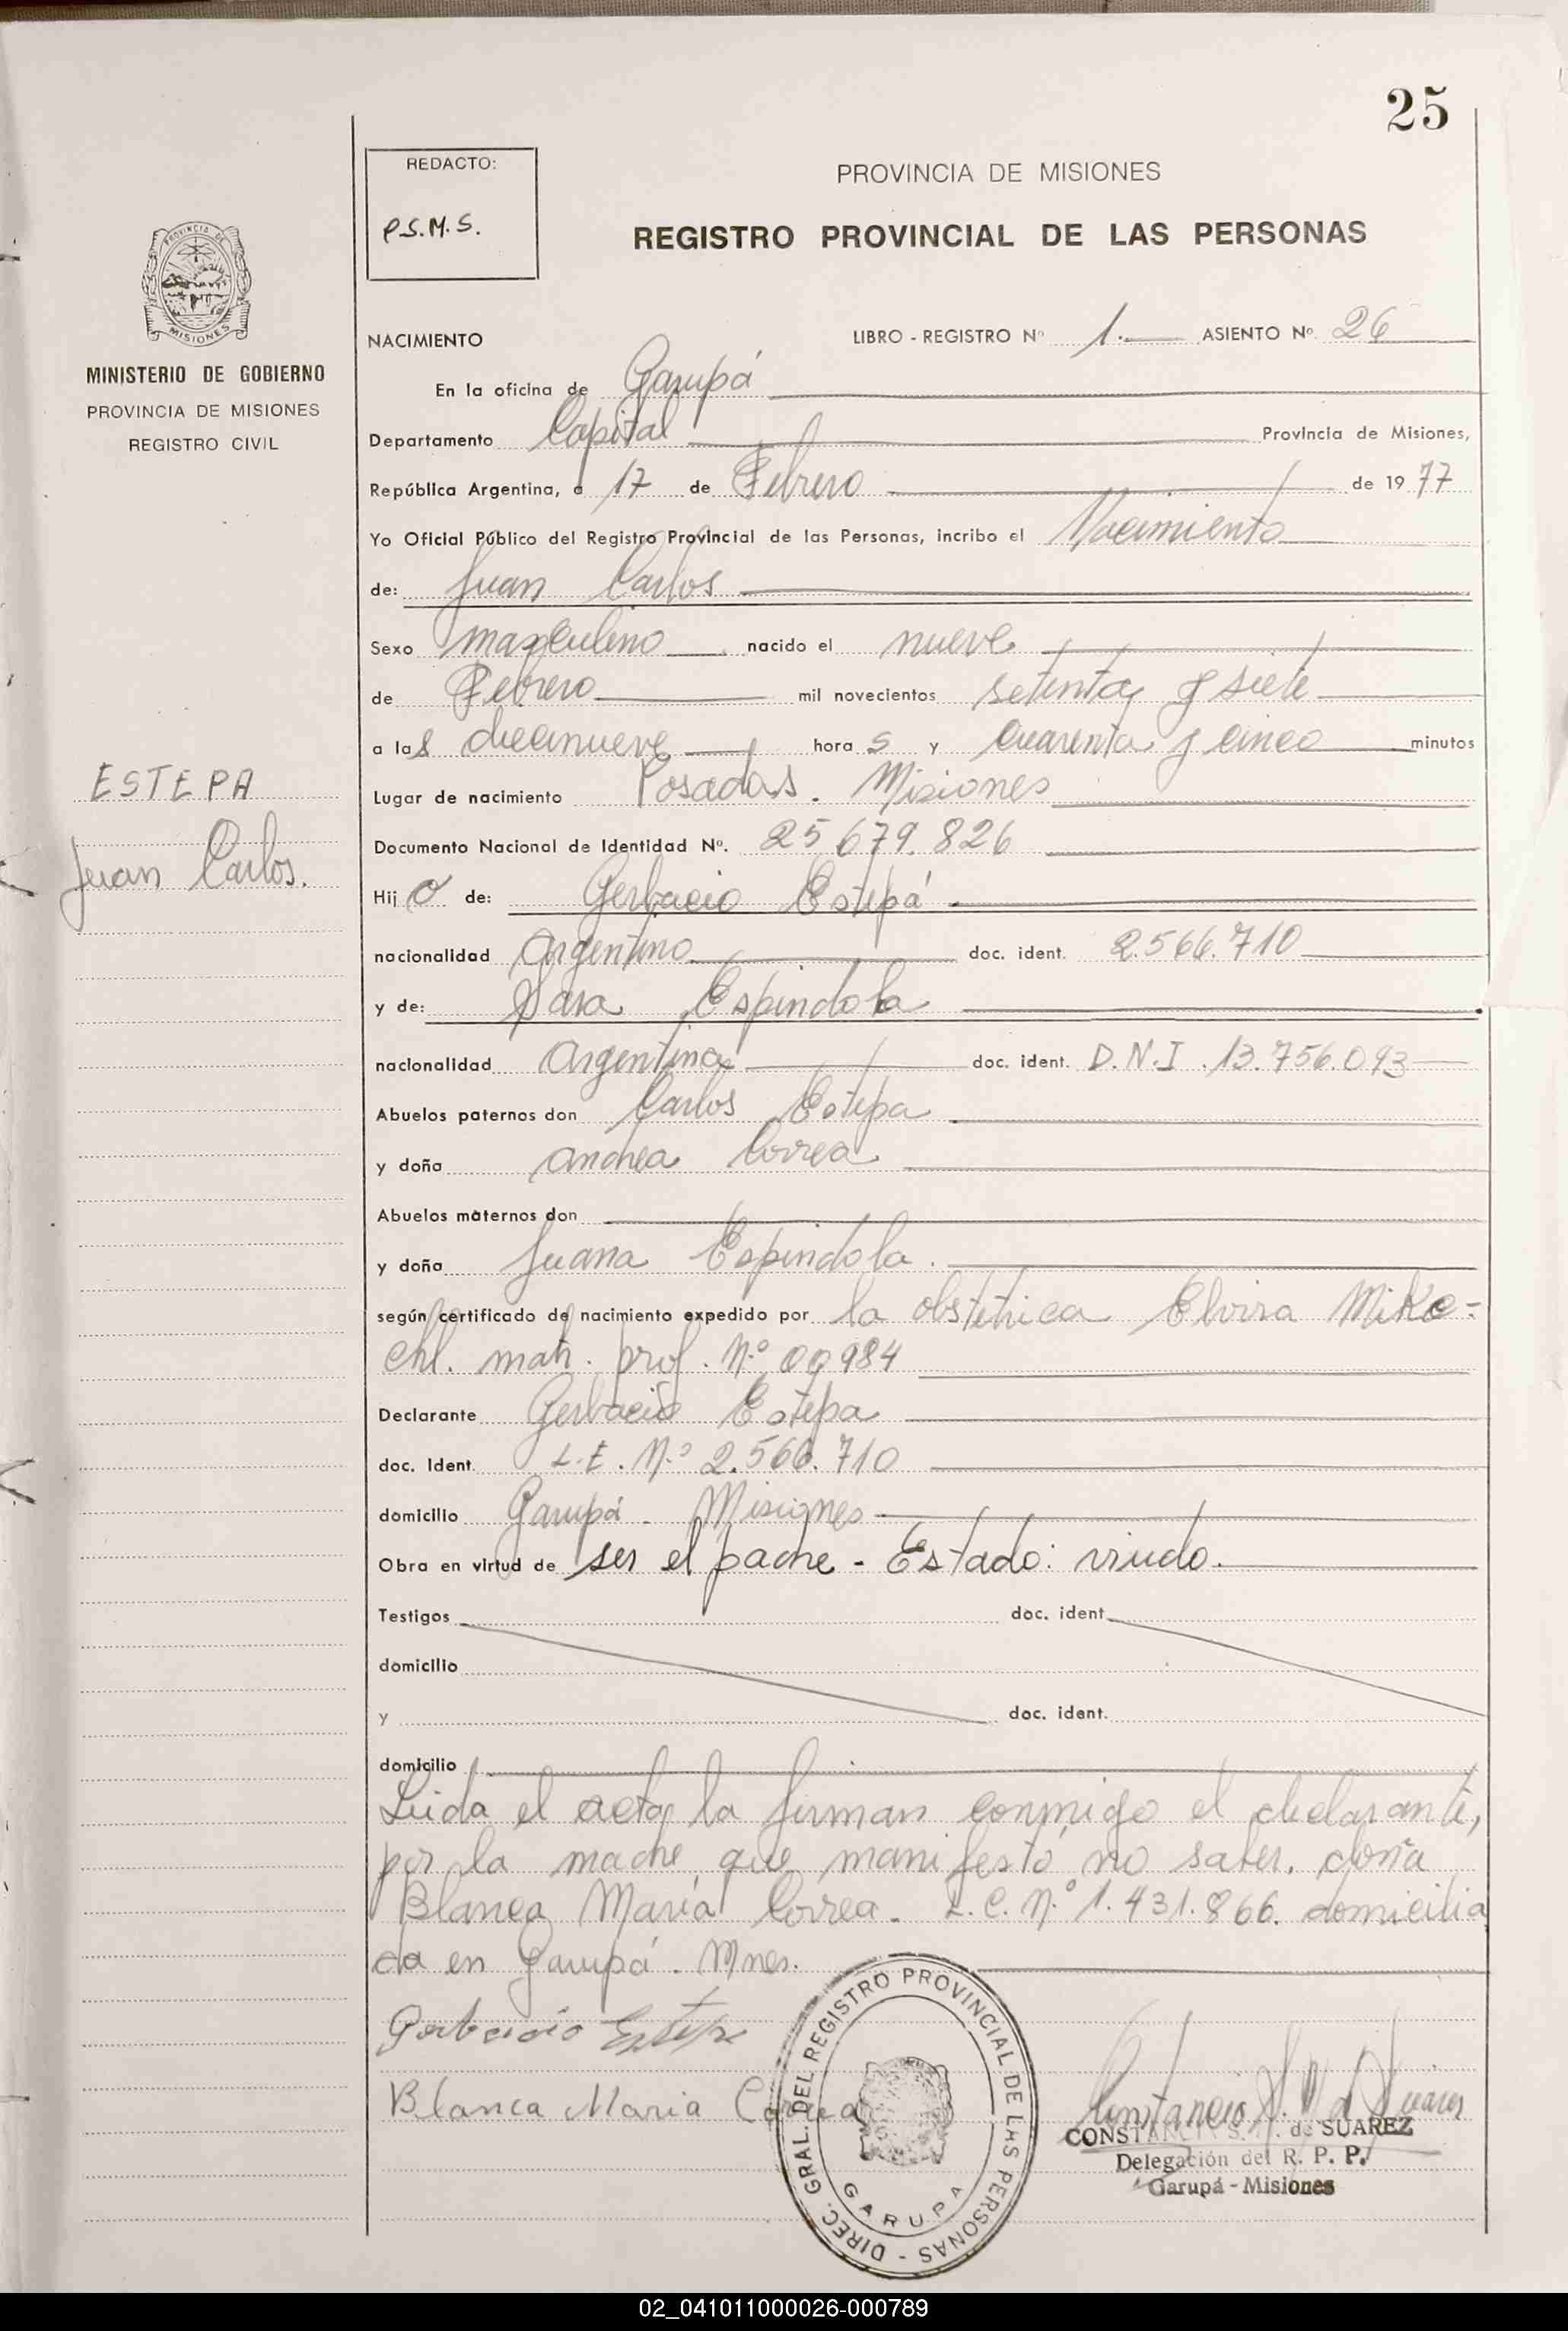 25
REDACTO:
P.S.M.S.
PROVINCIA DE MISIONES
REGISTRO PROVINCIAL DE LAS PERSONAS
PROVINCIA DE
MISIONES
MINISTERIO DE GOBIERNO
PROVINCIA DE MISIONES
REGISTRO CIVIL
NACIMIENTO LIBRO - REGISTRO Nº 1.— ASIENTO Nº 26
En la oficina de Garupá
Departamento Capital Provincia de Misiones,
República Argentina, a 17 de Febrero de 1977
Yo Oficial Público del Registro Provincial de las Personas, incribo el Nacimiento
de: Juan Carlos
Sexo masculino nacido el nueve
de Febrero mil novecientos setenta y siete
a las diecinueve horas y cuarenta y cinco minutos
ESTEPA
Juan Carlos.
Lugar de nacimiento Posadas. Misiones
Documento Nacional de Identidad Nº. 25.679.826
Hijo de: Gerbacio Estepá
nacionalidad Argentino doc. ident. 2.566.710
y de: Sara Espindola
nacionalidad Argentina doc. ident. D.N.I. 13.756.093
Abuelos paternos don Carlos Estepa
y doña Andrea Correa
Abuelos maternos don
y doña Juana Espindola.
según certificado de nacimiento expedido por la obstétrica Elvira Mike-
chl. mat. prof. Nº 00984
Declarante Gerbacio Estepa
doc. Ident. L.E. N.º 2.566.710
domicilio Garupá. Misiones
Obra en virtud de ser el padre - Estado: viudo.
Testigos doc. ident.
domicilio
y doc. ident.
domicilio
Leida el acta la firman conmigo el declarante,
por la madre que manifestó no saber, doña
Blanca María Correa. L.C. N.º 1.431.866. domicilia
da en Garupá. Mnes.
Gerbacio Estepa
Blanca Maria Correa
DIREC. GRAL. DEL REGISTRO PROVINCIAL DE LAS PERSONAS -
GARUPA
CONSTANCIA S. de SUAREZ
Delegación del R. P. P.
Garupá - Misiones
02_041011000026-000789